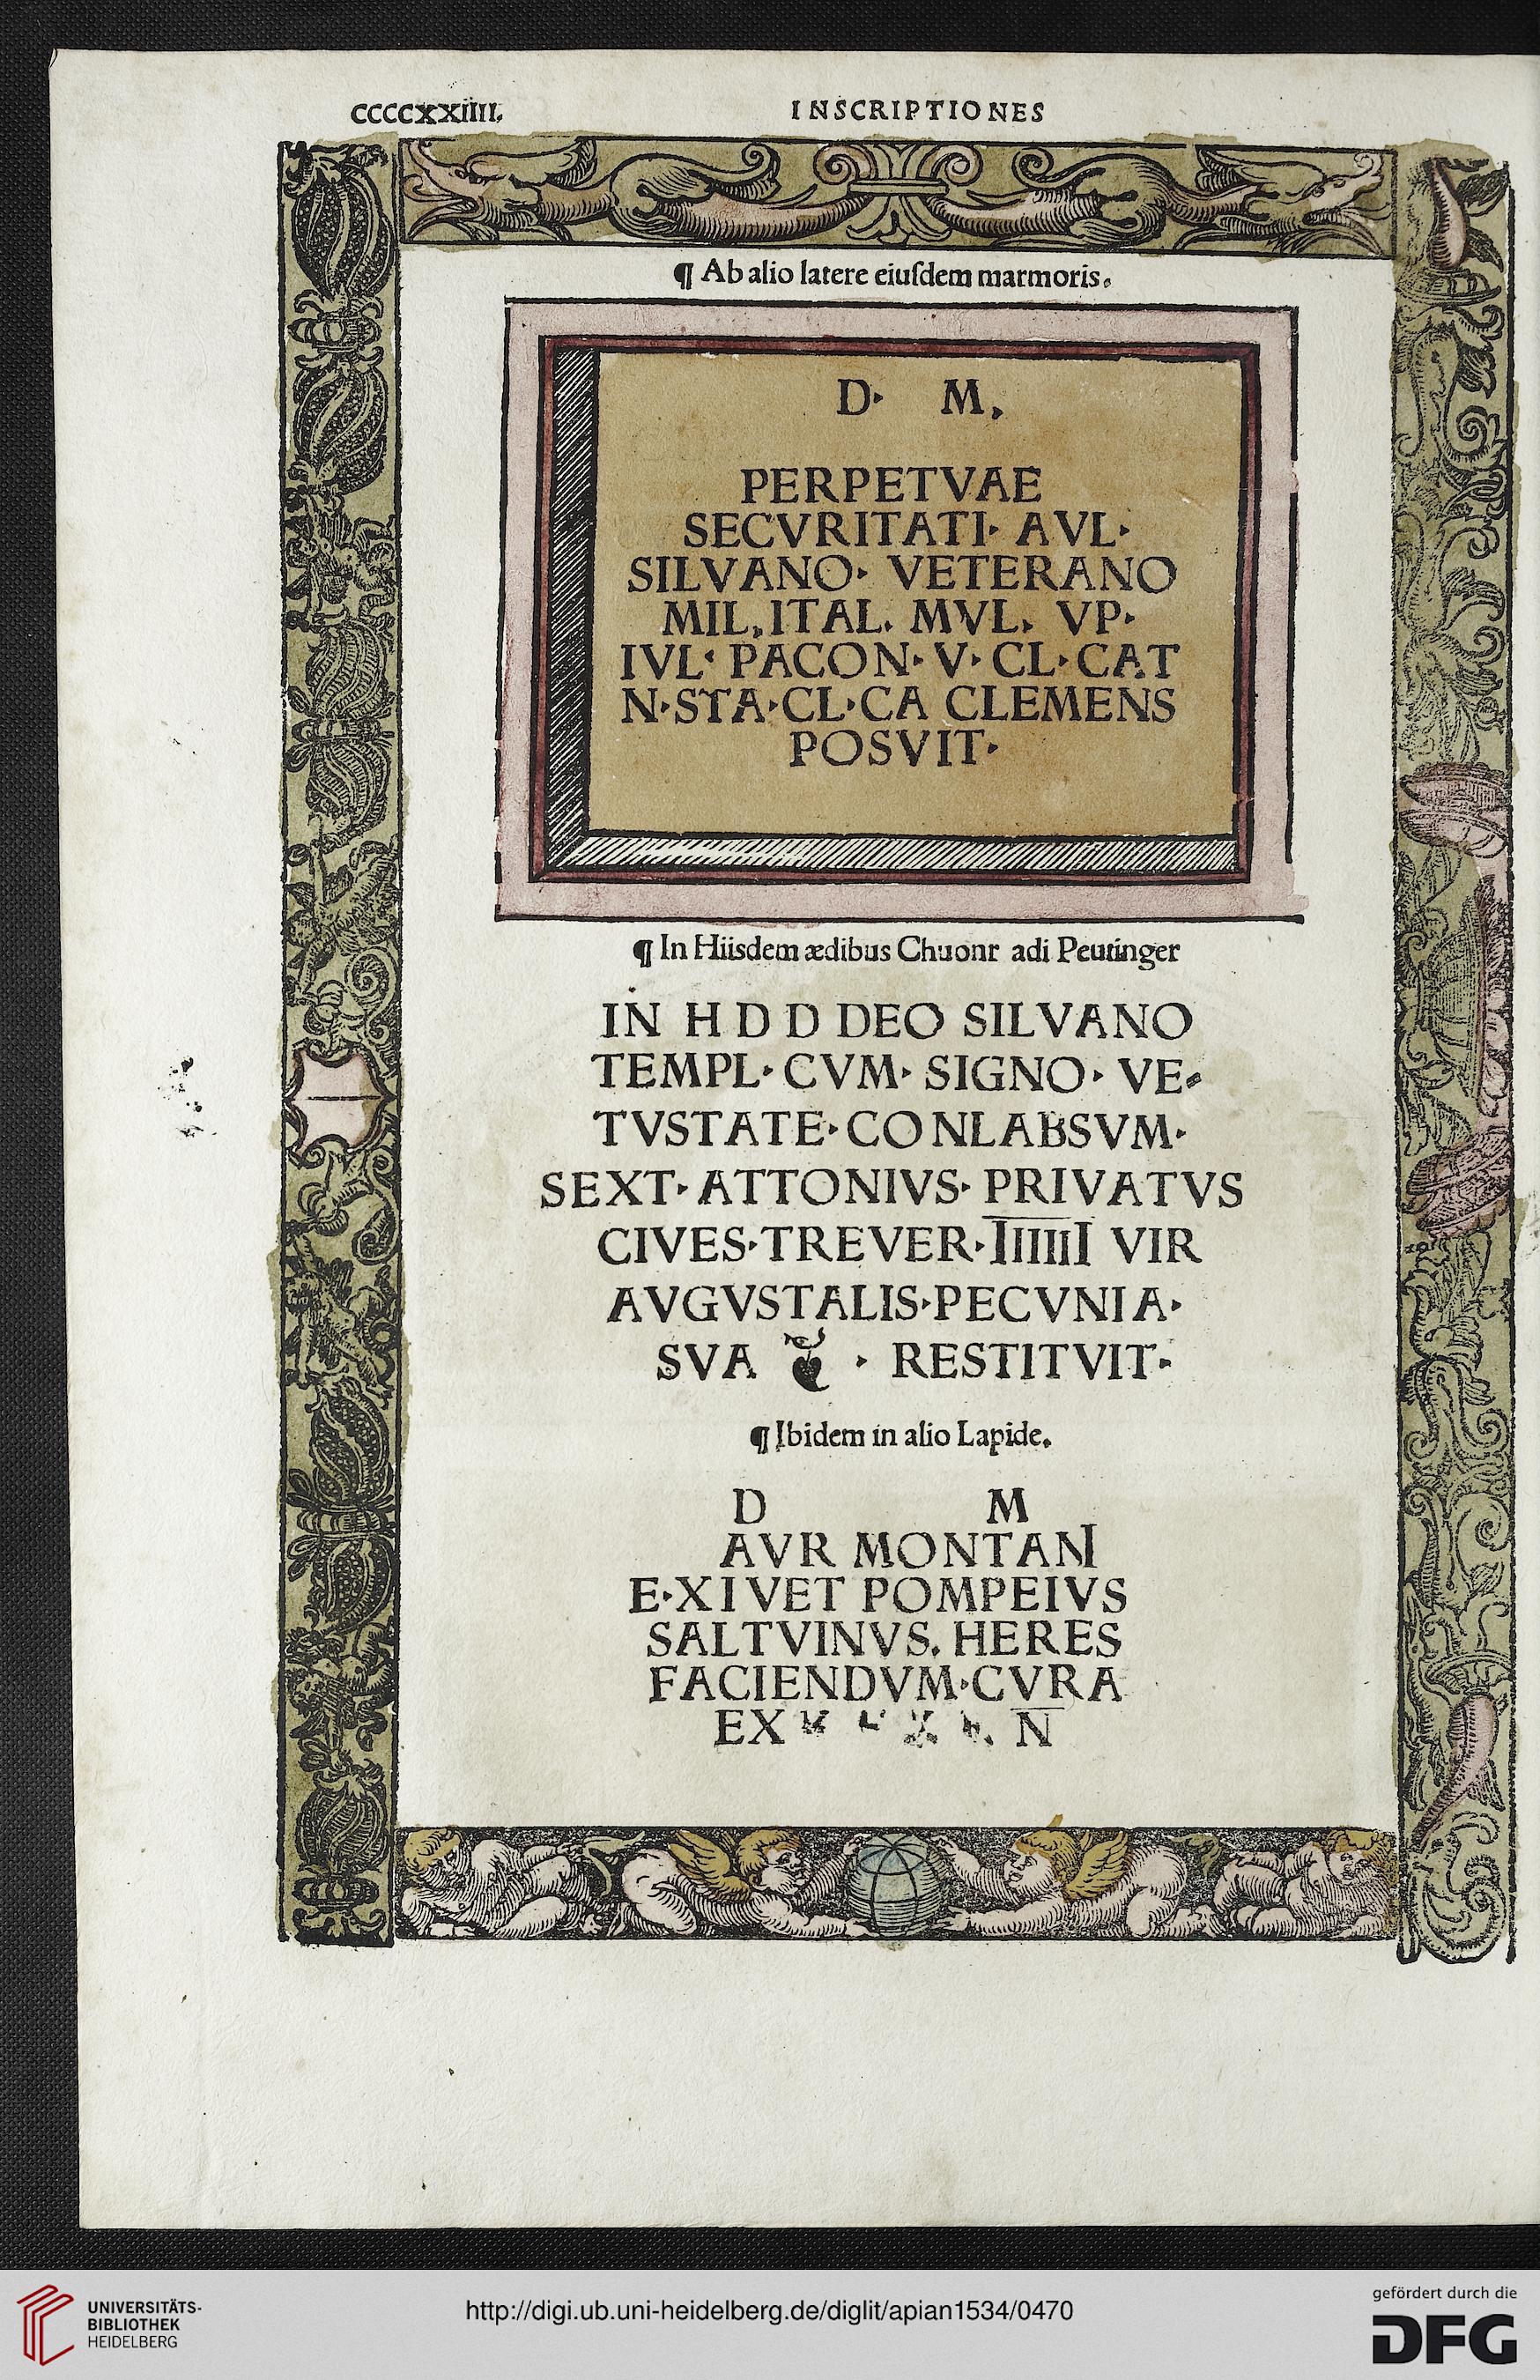 CCCCXXIIII.
INSCRIPTIONES
¶ Ab alio latere eiuſdem marmoris.
D· M.
PERPETVAE
SECVRITATI· AVL·
SILVANO· VETERANO
MIL. ITAL. MVL. VP·
IVL· PACON· V· CL· CAT
N·STA·CL·CA CLEMENS
POSVIT·
¶ In Hiisdem ædibus Chuonr adi Peutinger
IN H D D DEO SILVANO
TEMPL· CVM· SIGNO· VE-
TVSTATE· CONLABSVM·
SEXT· ATTONIVS· PRIVATVS
CIVES·TREVER·IIIIII VIR
AVGVSTALIS·PECVNIA·
SVA ❦ · RESTITVIT·
¶ Ibidem in alio Lapide.
D M
AVR MONTANI
E·XIVET POMPEIVS
SALTVINVS. HERES
FACIENDVM·CVRA
EX N
UNIVERSITÄTS-
BIBLIOTHEK
HEIDELBERG
http://digi.ub.uni-heidelberg.de/diglit/apian1534/0470
gefördert durch die
DFG